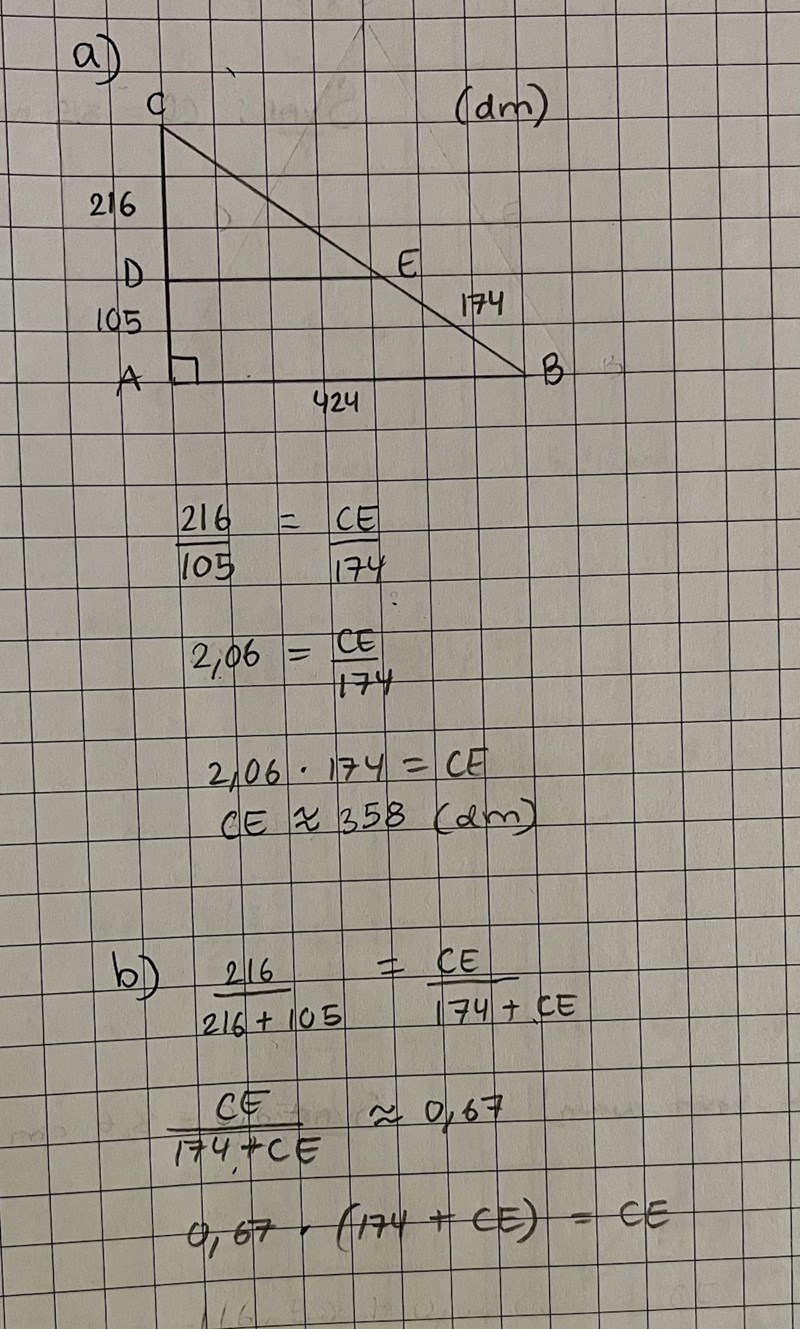 a)
C (dm)
216
D E
105 174
A B
424
216/105 = CE/174
2,06 = CE/174
2,06 · 174 = CE
CE ≈ 358 (dm)
b) 216/216 + 105 = CE/174 + CE
CE/174 + CE ≈ 0,67
0,67 · (174 + CE) = CE